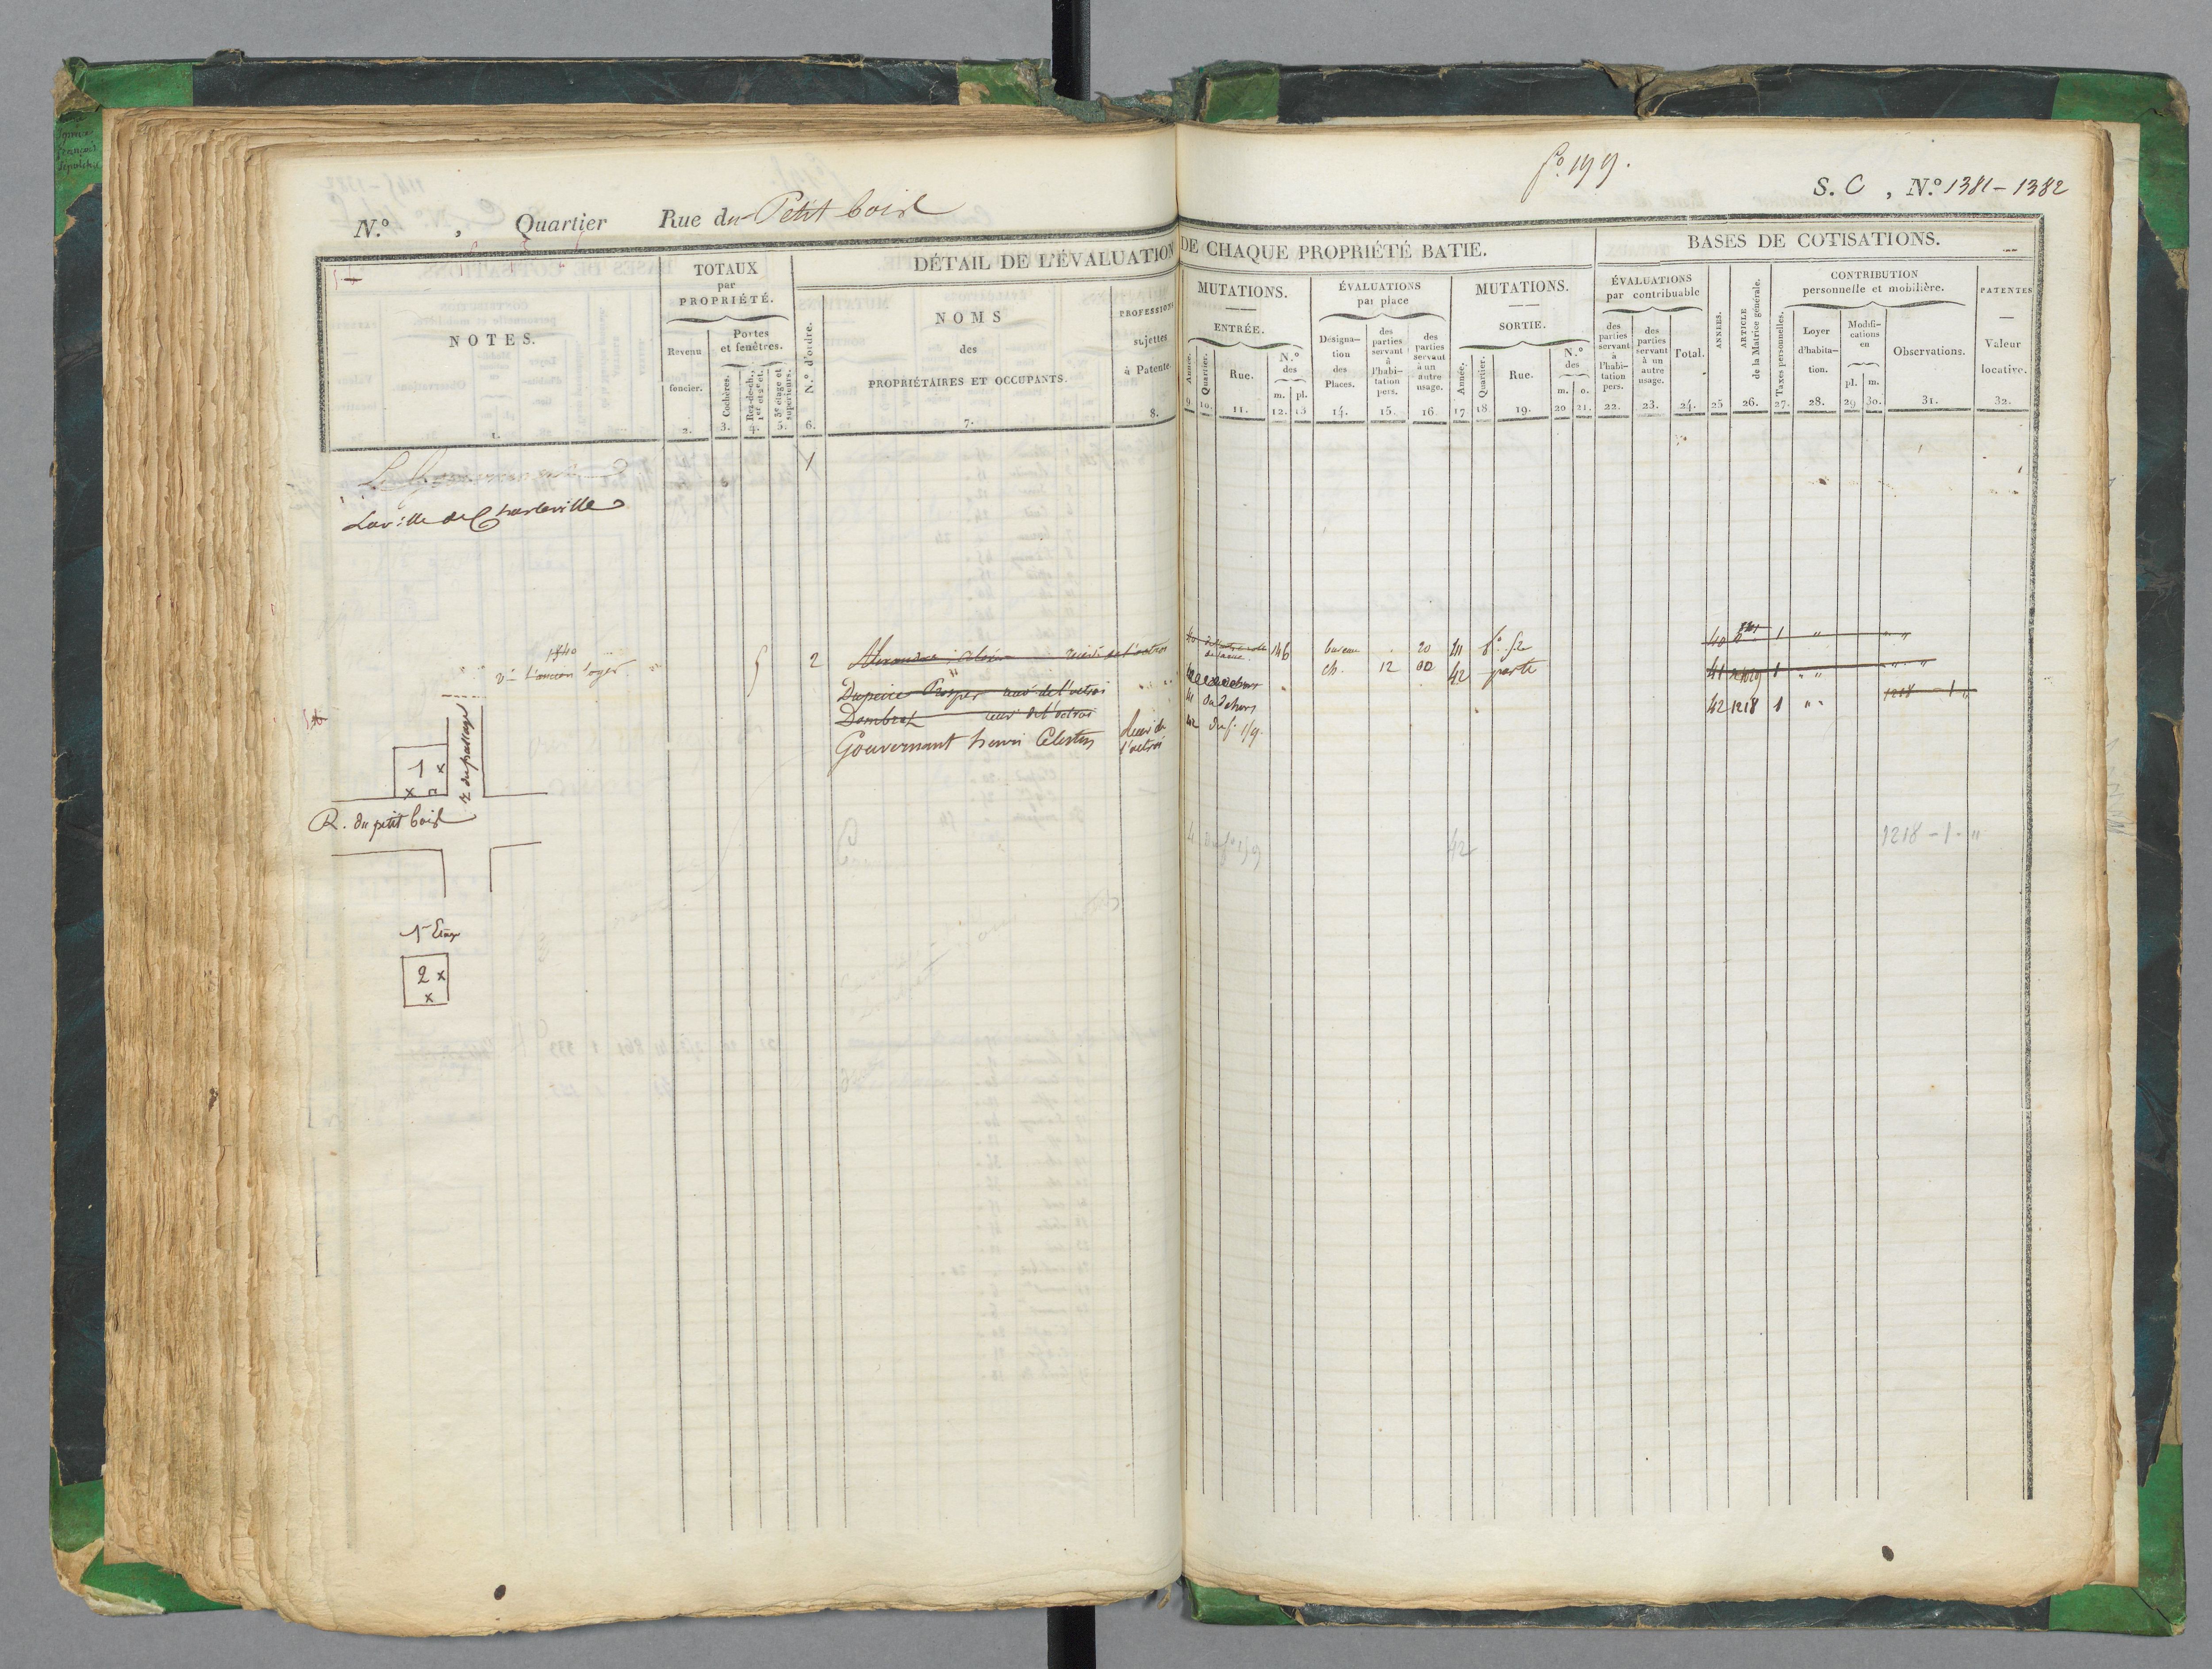 fo. 199.
S. C , N.º 1381 - 1382
N.º , Quartier Rue du Petit bois
DÉTAIL DE L'ÉVALUATION DE CHAQUE PROPRIÉTÉ BATIE.
BASES DE COTISATIONS.
NOTES.
1.
TOTAUX
par
PROPRIÉTÉ.
Revenu
foncier.
2.
Portes
et fenêtres.
Cochères.
3.
Rez-de-ch.,
1er et 2e et.
4.
3e étage et
supérieurs.
5.
N.º d'ordre.
6.
NOMS
des
PROPRIÉTAIRES ET OCCUPANTS.
7.
PROFESSIONS
sujettes
à Patente.
8.
MUTATIONS.
ENTRÉE.
Année.
9.
Quartier.
10.
Rue.
11.
N.º
des
m.
12.
pl.
13
ÉVALUATIONS
par place
Désigna-
tion
des
Places.
14.
des
parties
servant
à
l'habi-
tation
pers.
15.
des
parties
servant
à un
autre
usage.
16.
MUTATIONS.
SORTIE.
Année.
17
Quartier.
18
Rue.
19.
N.º
des
m.
20
o.
21.
ÉVALUATIONS
par contribuable
des
parties
servant
à
l'habi-
tation
pers.
22.
des
parties
servant
à un
autre
usage.
23.
Total.
24.
ANNÉES.
25
ARTICLE
de la Matrice générale.
26.
Taxes personnelles.
27.
CONTRIBUTION
personnelle et mobilière.
Loyer
d'habita-
tion.
28.
Modifi-
cations
en
pl.
29
m.
30.
Observations.
31.
PATENTES
Valeur
locative.
32.
1
La ville de Charleville
1840
l'ancien loyer
5 2 Alexandre recev. de l'octroi 146 bureau 20 41 fo. 52 40 1 "
Dupeire Prosper recev. de l'octroi ch. 12 42 parti 41 1 " "
Dombrat recev. de l'octroi 41 du dehors 42 1218 1 " " 1218 - 1 "
Gouvernant henri Célestin Recev. de
l'octroi 42 du fo. 199.
r. du passage
1 x
x
R. du petit bois
42 1218 - 1 - "
1er Etage
2 x
x